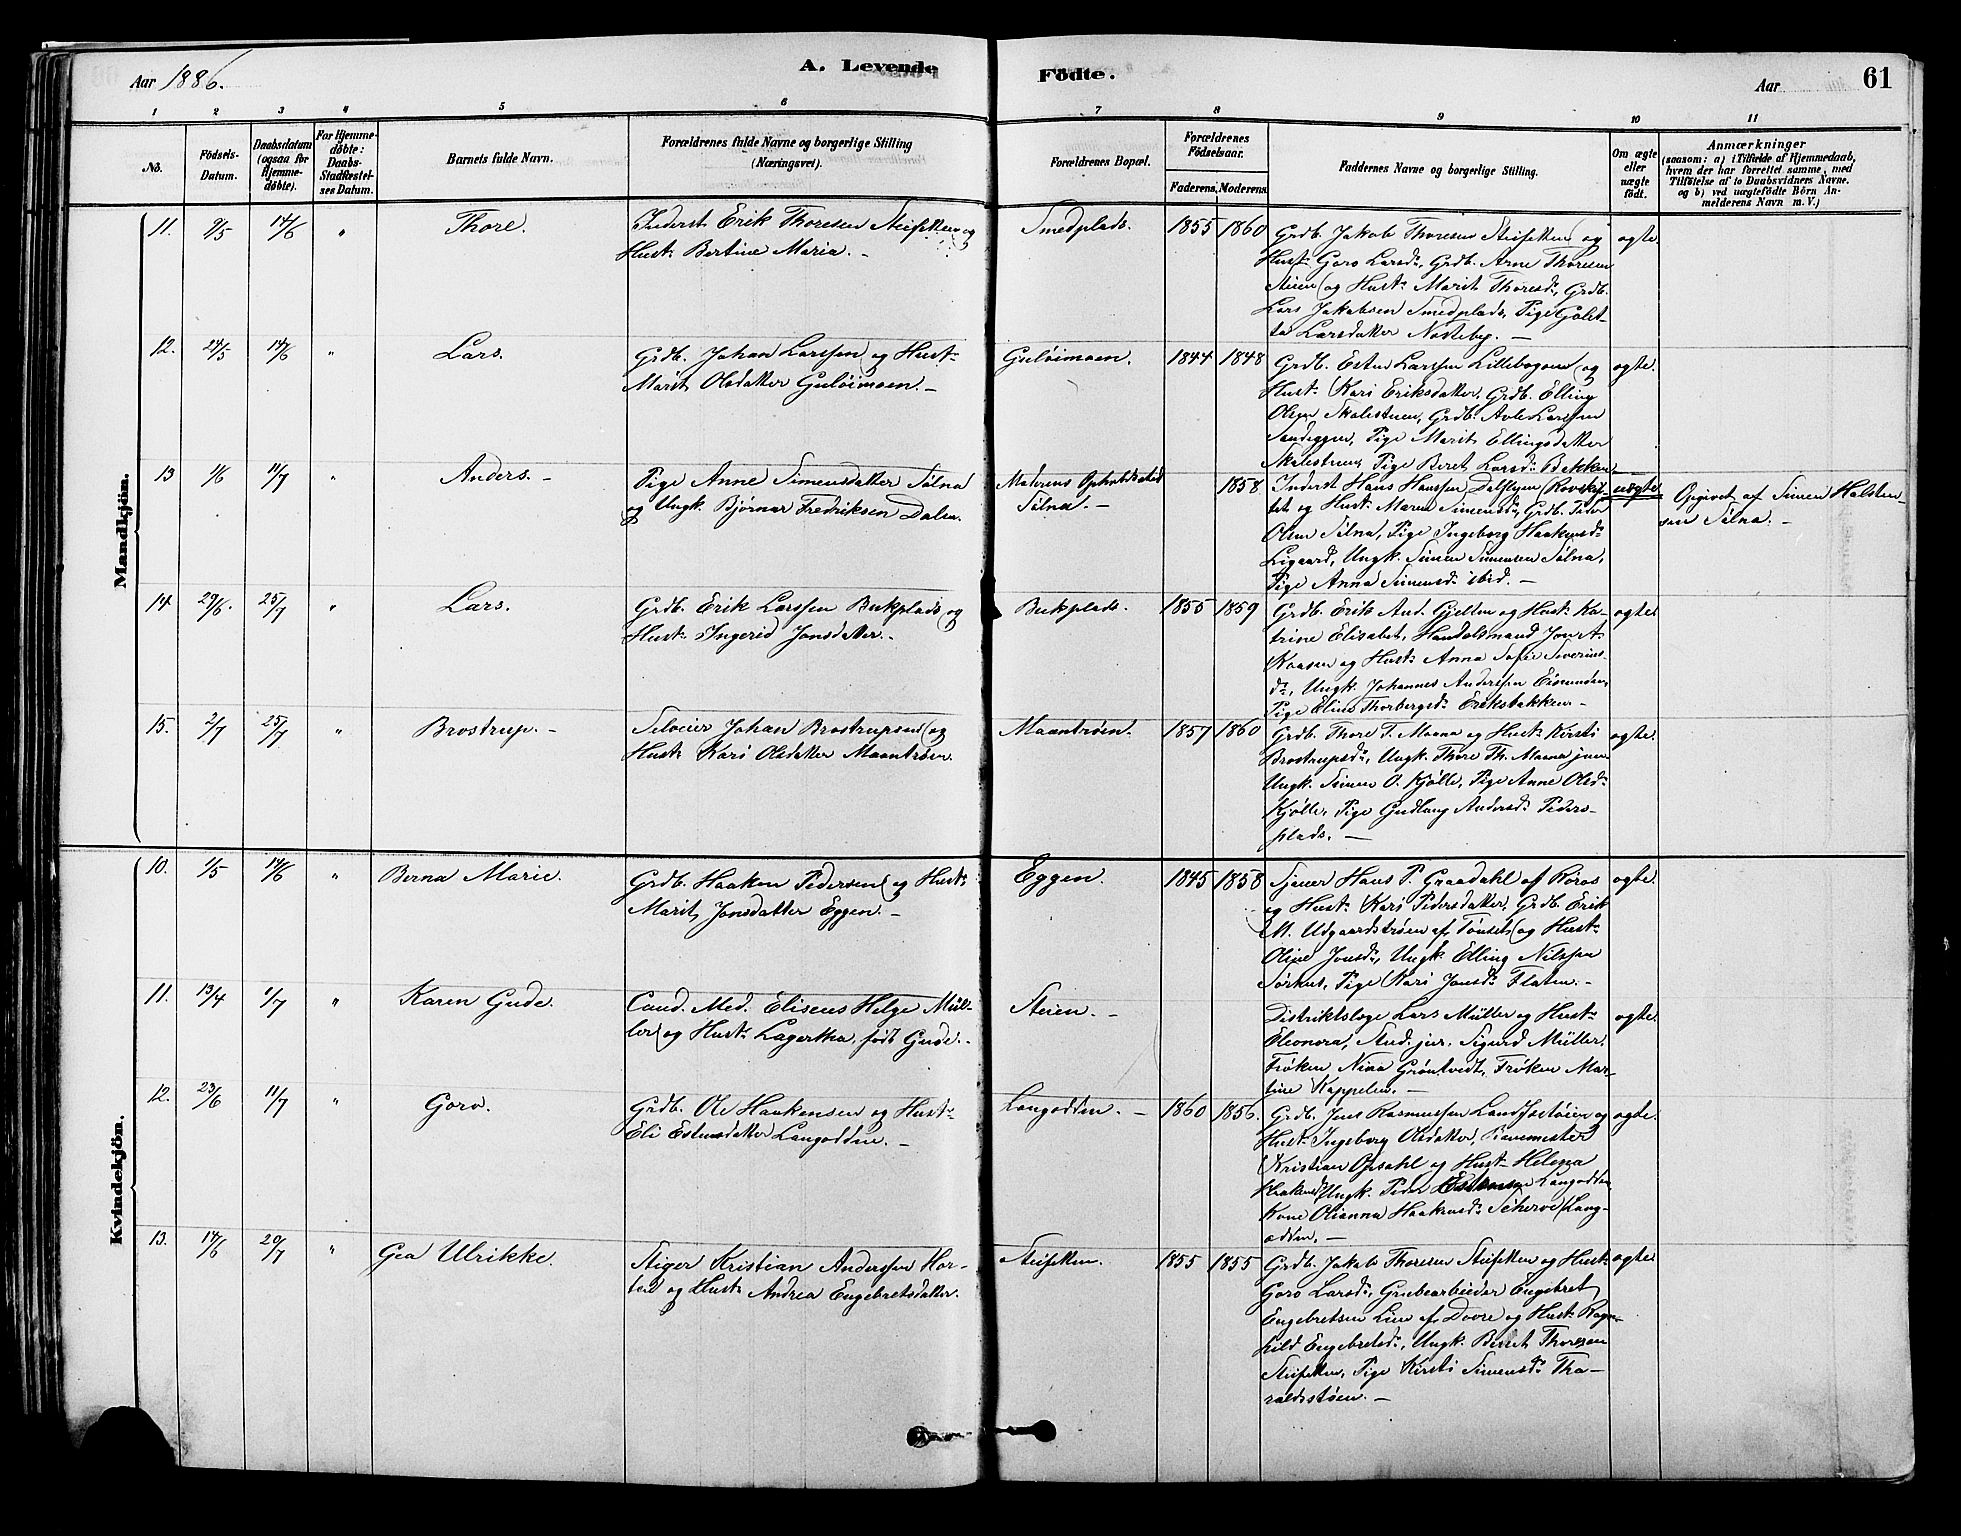 Aar 1886.
A. Levende
Födte.
Aar
61
1 2 3 4 5 6 7 8 9 10 11
No.
Födsels-
Datum.
Daabsdatum
(ogsaa for
Hjemme-
døbte).
For Hjemme-
døbte:
Daabs-
Stadfæstel-
ses Datum.
Barnets fulde Navn.
Forældrenes fulde Navne og borgerlige Stilling
(Næringsvei).
Forældrenes Bopæl.
Forældrenes
Födselsaar.
Faderens. Moderens.
Faddernes Navne og borgerlige Stilling.
Om ægte
eller
uægte
födt.
Anmærkninger
(saasom: a) i Tilfælde af Hjemmedaab,
hvem der har forrettet samme, med
Tilføielse af to Daabsvidners Navne.
og b) ved uægtefödte Börn An-
melderens Navn m. V.)
Mandkjön.
11. 9/5 14/6 " Thore.
Inderst Erik Thoresen Steifetten og
Hust: Bertine Maria. -
Smedplads. 1855 1860
Grdb. Jakob Thoresen Steifetten og
Hust: Goro Larsd:, Grdb. Arne Thoresen
Steien og Hust: Marit Thoresd:, Grdb.
Lars Jakobsen Smedplads, Pige Golet-
ta Larsdatter Nosteby. -
ægte
12. 24/5 14/6 " Lars.
Grdb. Johan Larssen og Hust:
Marit Olsdatter Guløimoen. -
Guløimoen. 1844 1848
Grdb. Esten Larssen Lillebogoen og
Hust: Kari Eriksdatter, Grdb. Elling
Olsen Skalestuen, Grdb. Avle Larssen
Sandeggen, Pige Marit Ellingsdatter
Skalestuen, Pige Beret Larsd: Bakken. -
ægte.
13 1/6 11/7 " Anders. -
Pige Anne Simensdatter Sølna
og Ungk. Bjørnar Fredriksen Dalen.
Moderens Opholdssted
Sølna. -
1858
Inderst Hans Hanssen Dalslyen (Rovskif-
tet og Hust: Maren Simensd:, Grdb. Peder
Olsen Sølna, Pige Ingeborg Haakensd:
Ligaard, Ungk. Simen Simensen Sølna,
Pige Anna Simensd: ibid. -
uægte
Opgivet af Simen Halsten-
sen Sølna. -
14 29/6. 25/7 " Lars.
Grdb. Erik Larssen Bukplads og
Hust: Ingerid Jonsdatter. -
Bukplads. 1855 1859
Grdb. Erik And. Gjelten og Hust: Ka-
trine Elisabet, Handelsmand Jon A.
Kaasen og Hust: Anna Sofie Severins-
d:, Ungk. Johannes Anderssen Eisunden,
Pige Eline Thorbergsd: Eriksbakken. -
ægte
15. 2/7 25/7 " Brostrup. -
Selveier Johan Brostrupsen og
Hust: Kari Olsdatter Maantrøen.
Maantrøen. 1857 1860
Grdb. Thore T. Maana og Hust: Kirsti
Brostrupsd:, Ungk. Thore Th. Maana jun.
Ungk. Simen O. Kjølle, Pige Anne Olsd:
Kjølle, Pige Gudlaug Andersd: Peders-
plads. -
ægte.
Kvindekjön.
10. 1/5 14/6 " Berna Marie.
Grdb. Haaken Pedersen og Hust:
Marit Jonsdatter Eggen. -
Eggen. 1845 1858
Sjauer Hans P. Graadahl af Røros
og Hust: Kari Pedersdatter, Grdb. Erik
M. Udgaardstrøen af Tønset og Hust:
Oline Jonsd:, Ungk. Elling Nilssen
Sørhus, Pige Kari Jonsd: Flaten. -
ægte.
11. 13/4 1/7 " Karen Gude.
Cand. Med. Eliseus Helge Mül-
ler og Hust: Lagertha, født Gude. -
Steien. -
Distriktslæge Lars Müller og Hust:
Eleonora, Stud. jur. Sigurd Müller,
Frøken Nina Grøntvedt, Frøken Mar-
tine Kappelen. -
ægte.
12. 23/6 11/7 " Goro.
Grdb. Ole Haakensen og Hust:
Eli Estensdatter Langodden. -
Langodden. - 1860 1856.
Grdb. Jens Rasmussen Landsetøien og
Hust: Ingeborg Olsdatter,
Kristian Opsahl og Hust: Helena
Haakensd: Ungk. Peder Estensen Langodden
Kone Olianna Haakensd: (Lang-
odden. -
ægte.
13. 14/6 20/7 " Gea Ulrikke.
Stiger Kristian Anderssen Hor-
ten og Hust: Andrea Engebretsdatter.
Steifetten. 1855 1855
Grdb. Jakob Thoresen Steifetten og Hust:
Goro Larsd:, Grubearbeider Engebret
Engebretsen Lien af Dovre og Hust: Ragn-
hild Engebretsd:, Ungk. Bersvet Thoresen
Steifetten, Pige Kirsti Simensd: Tha-
raldsstøen. -
ægte